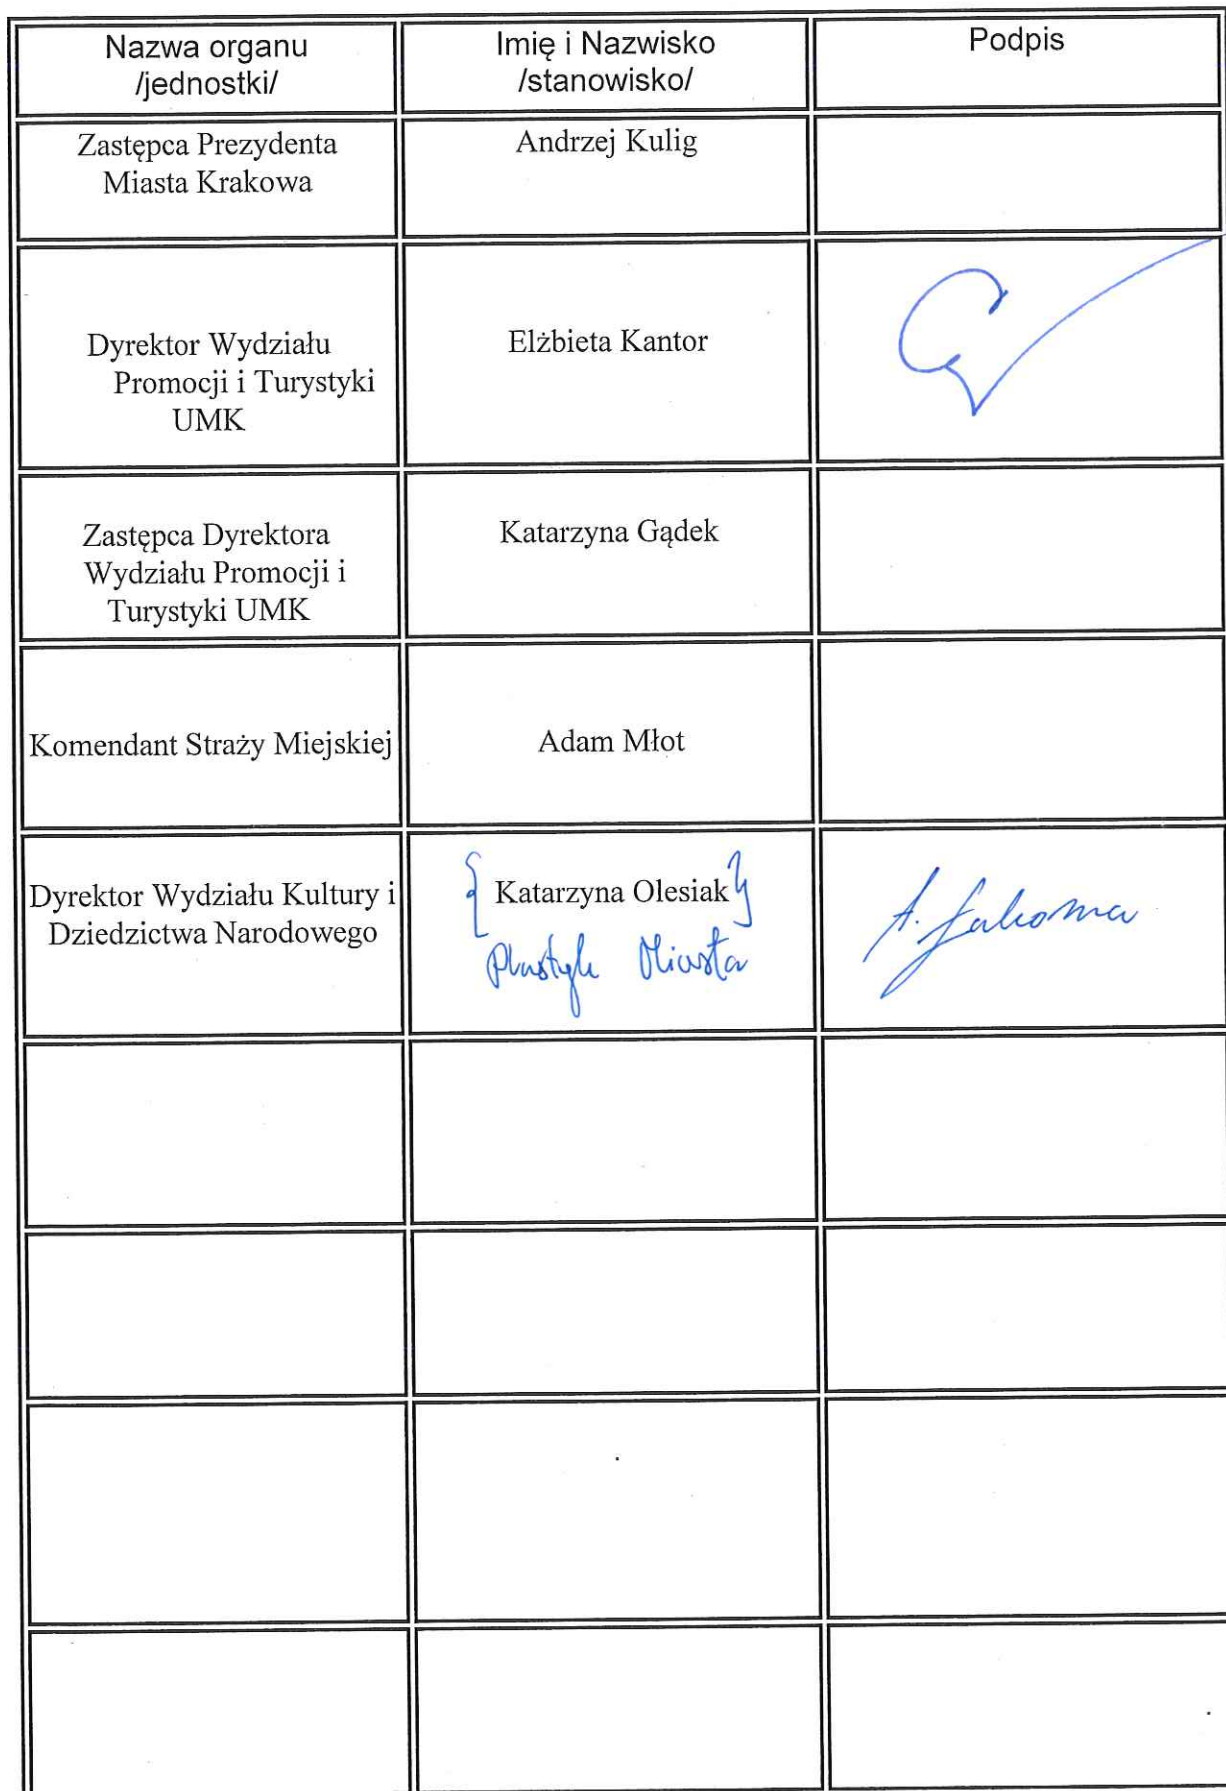 Nazwa organu
/jednostki/
Imię i Nazwisko
/stanowisko/
Podpis
Zastępca Prezydenta
Miasta Krakowa
Andrzej Kulig
Dyrektor Wydziału
Promocji i Turystyki
UMK
Elżbieta Kantor
Zastępca Dyrektora
Wydziału Promocji i
Turystyki UMK
Katarzyna Gądek
Komendant Straży Miejskiej
Adam Młot
Dyrektor Wydziału Kultury i
Dziedzictwa Narodowego
{ Katarzyna Olesiak }
Plastyk Miasta
A.